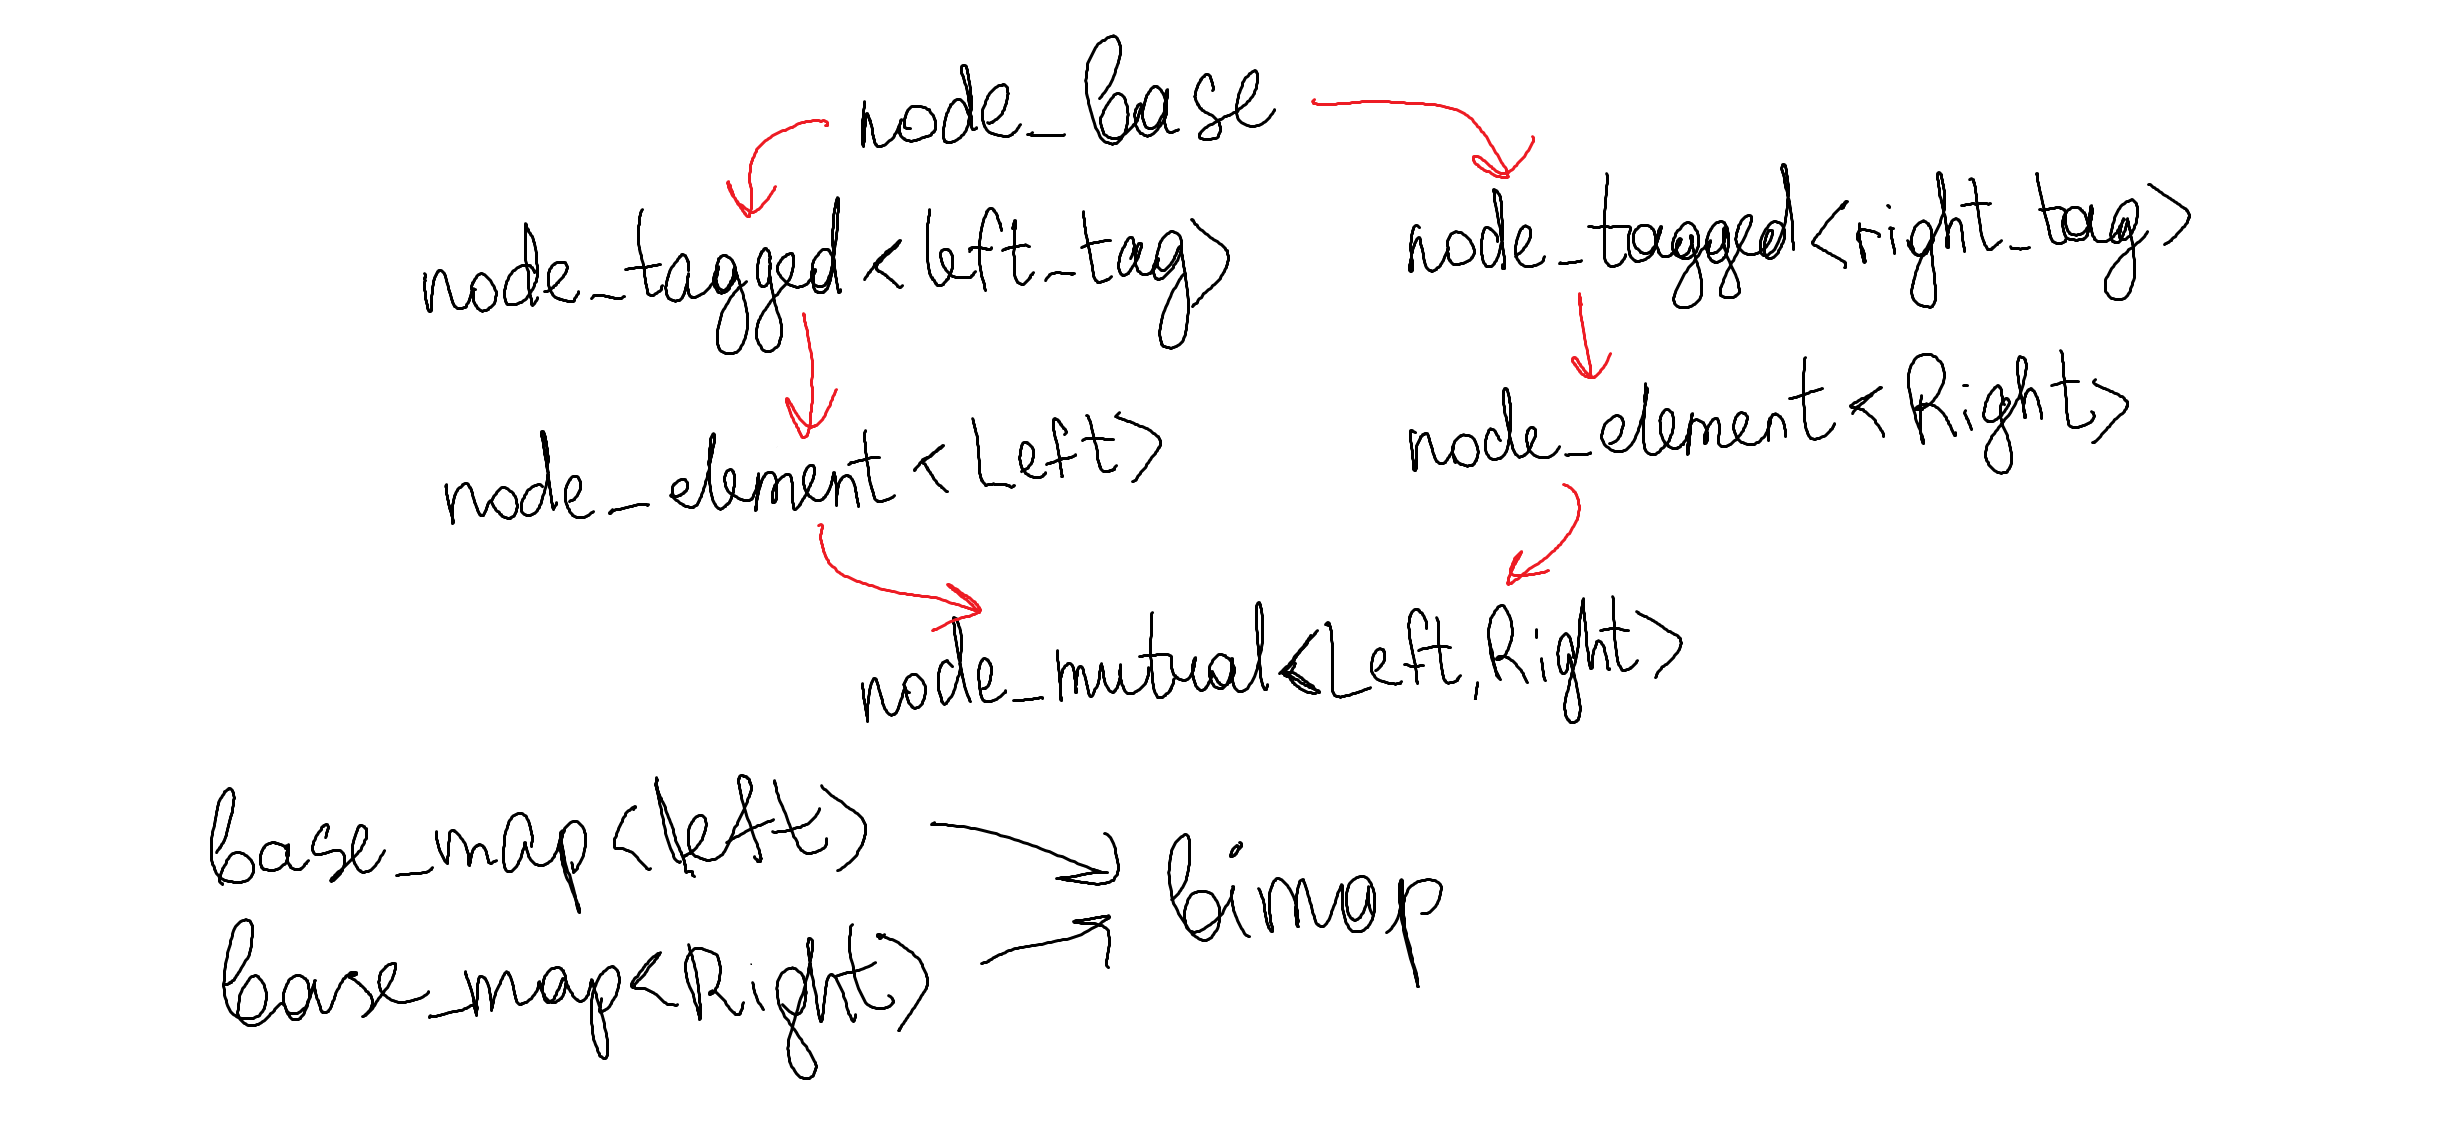 node_base
node_tagged<left_tag>
node_tagged<right_tag>
node_element<Left>
node_element<Right>
node_mutual<Left,Right>
base_map<left>
base_map<Right>
bimap